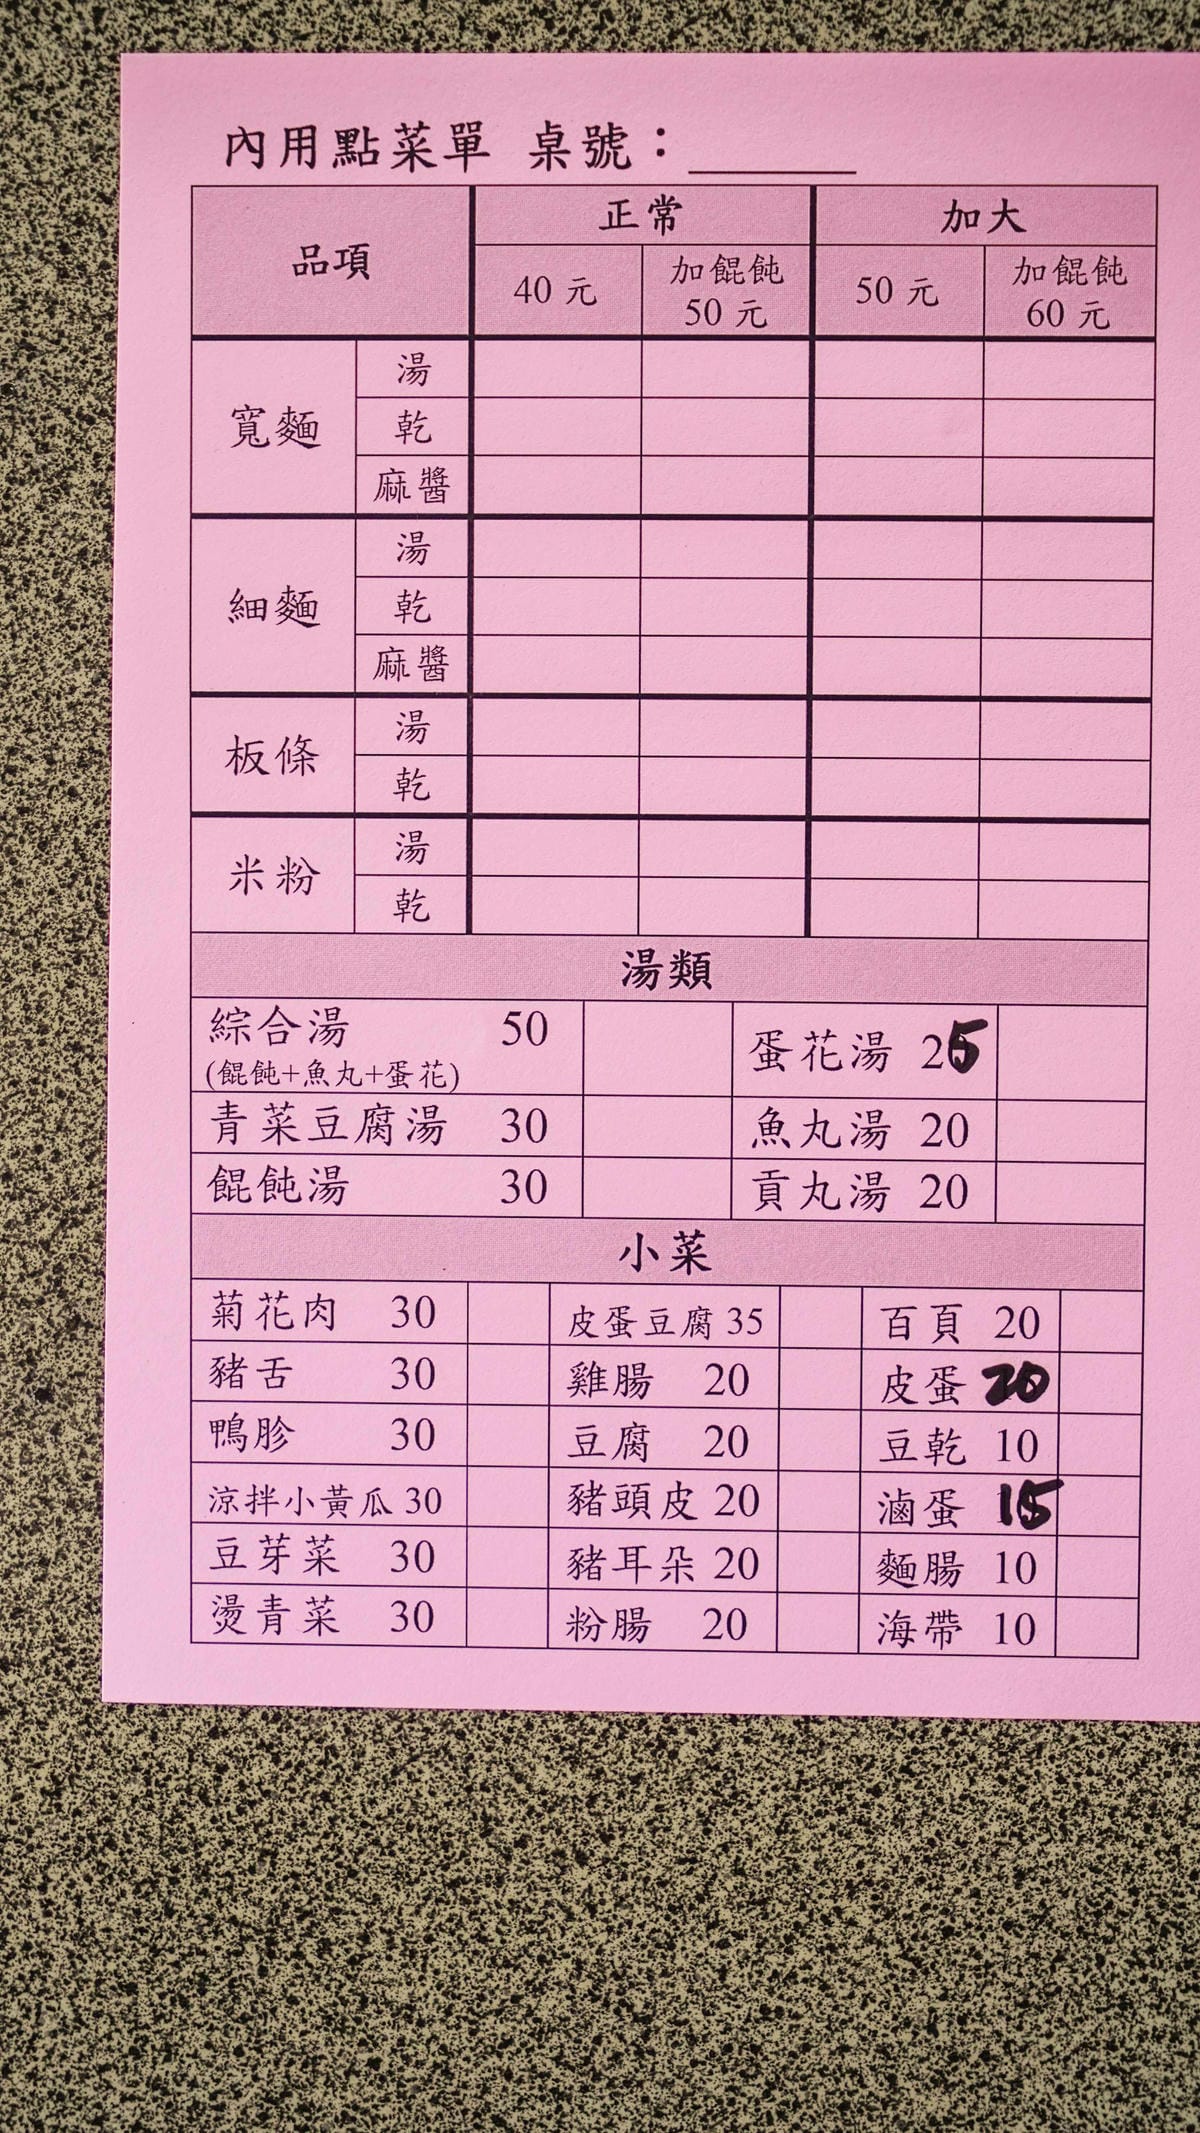 內用點菜單 桌號：
品項 正常 加大
40元 加餛飩 50元 50元 加餛飩 60元
寬麵 湯
乾
麻醬
細麵 湯
乾
麻醬
板條 湯
乾
米粉 湯
乾
湯類
綜合湯 50 蛋花湯 25
(餛飩+魚丸+蛋花)
青菜豆腐湯 30 魚丸湯 20
餛飩湯 30 貢丸湯 20
小菜
菊花肉 30 皮蛋豆腐 35 百頁 20
豬舌 30 雞腸 20 皮蛋 20
鴨胗 30 豆腐 20 豆乾 10
涼拌小黃瓜 30 豬頭皮 20 滷蛋 15
豆芽菜 30 豬耳朵 20 麵腸 10
燙青菜 30 粉腸 20 海帶 10